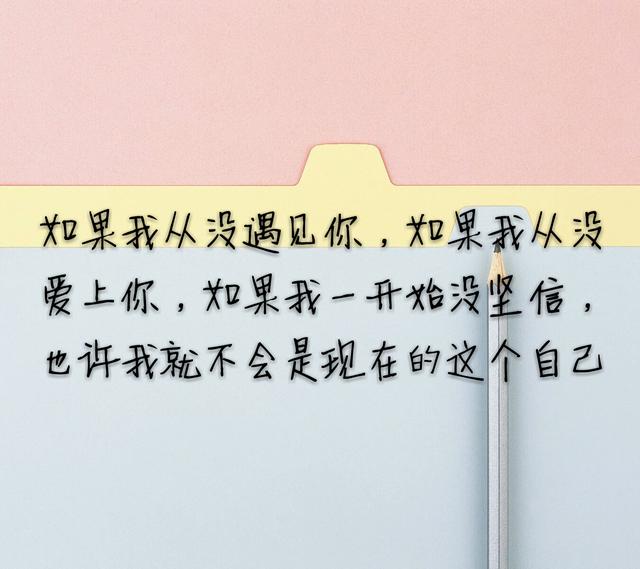 如果我从没遇见你，如果我从没
爱上你，如果我一开始没坚信，
也许我就不会是现在的这个自己